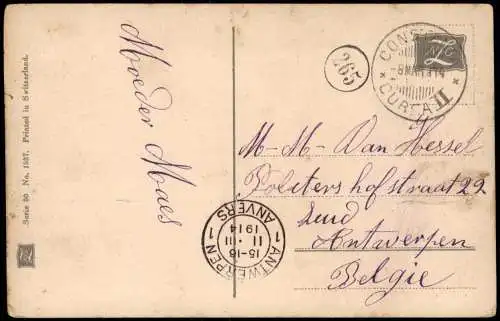 Serie 90 No. 1337. Printed in Switzerland.
Moeder Maes
265
8 MAR 14
CURTA II
M-M- Van Hessel
Polctershofstraat 22
Zuid
Antwerpen
Belgie
1 ANTWERPEN 1
15-16
11 · III
1914
ANVERS